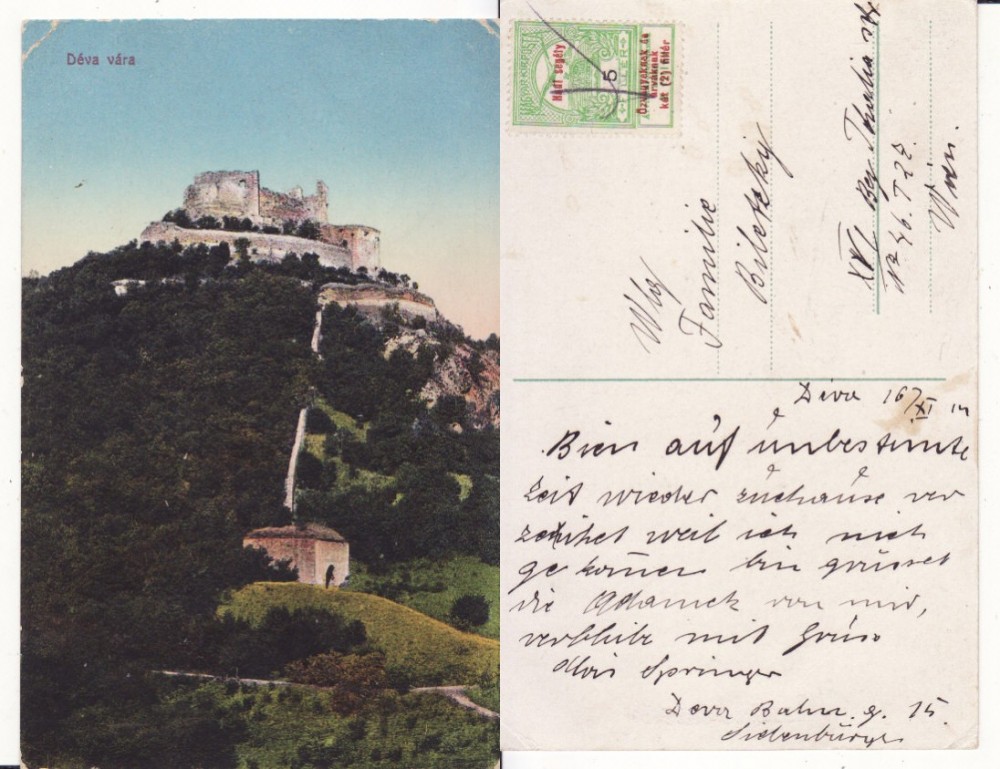 Déva vára
MAGYAR KIR. POSTA
Hadi segély
5
FILLÉR
Özvegyeknek és
árváknak
két (2) fillér
Familie
Biletzky
XVI Bez Thalia
Nr 46. T 22
Wien.
Deva 16/XI
Bien auf unbestimte
Zeit wieder zuhause ver
zeihet weil ich nich
gekomen bin grüsset
die Adametz von mir,
verbleibe mit Grüse
Alois Springer
Deva Bahn. g. 15.
Siebenbürgen